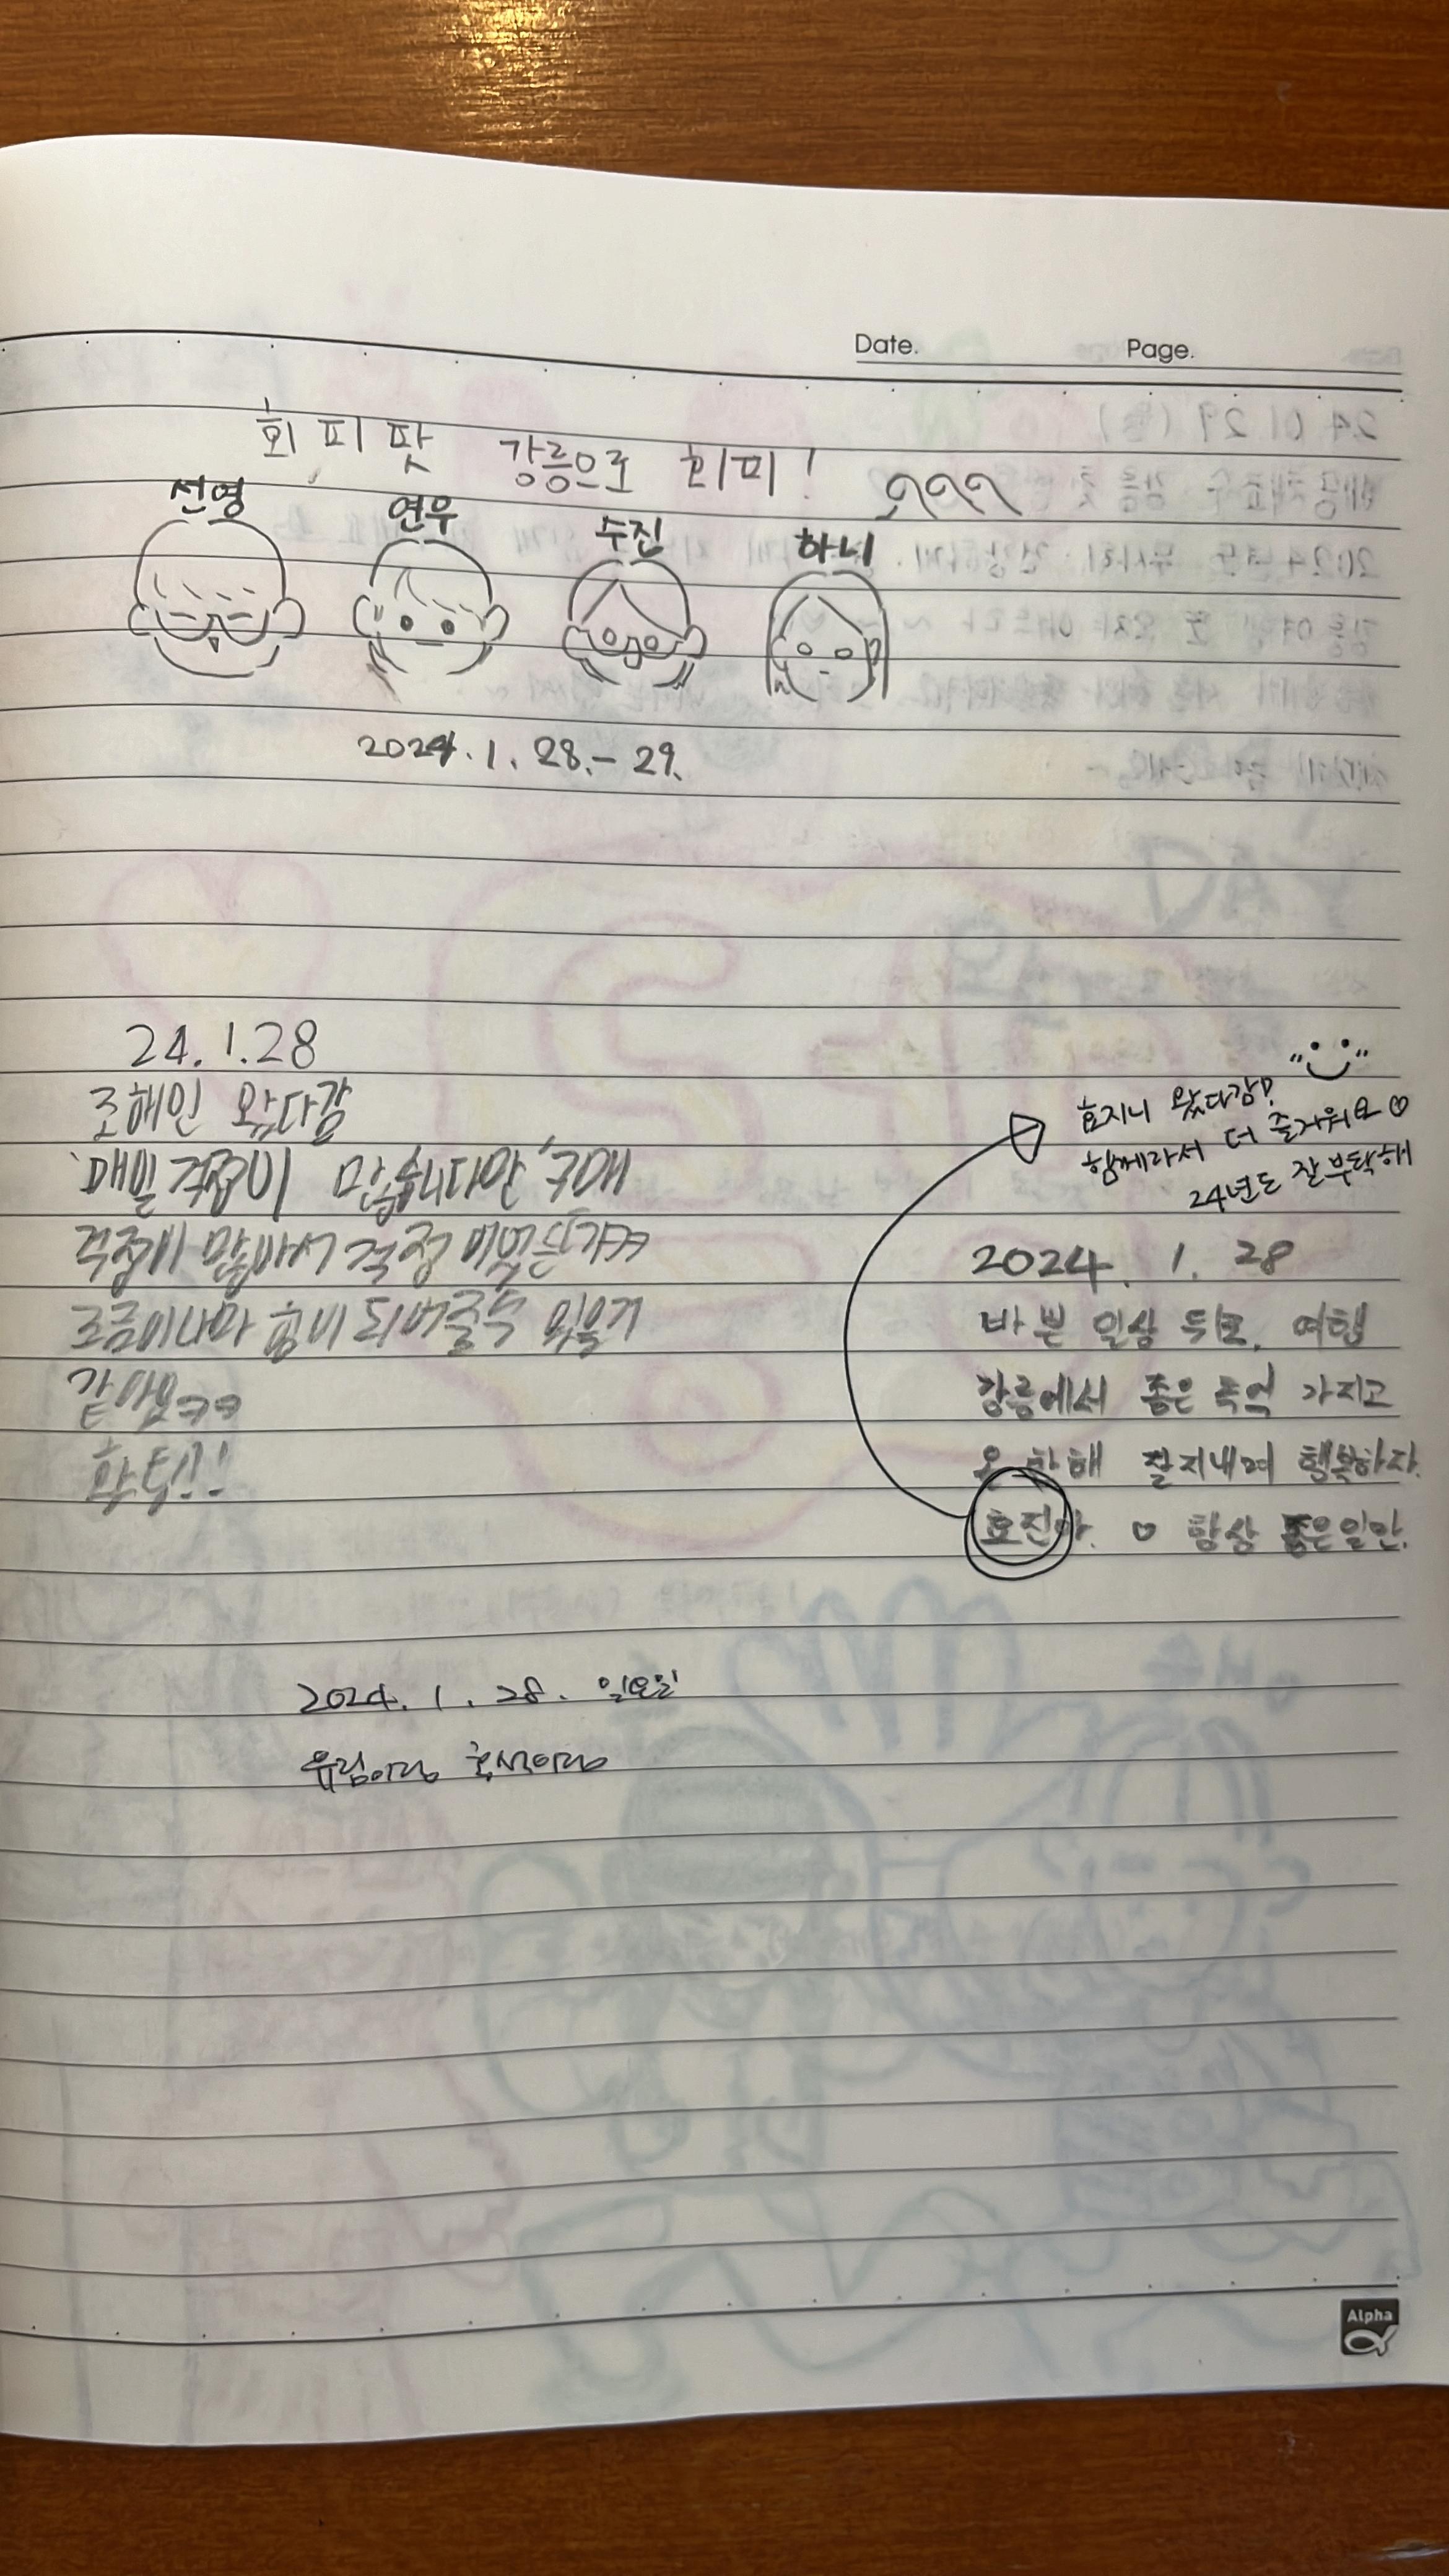 Date. Page.
회피팟 강릉으로 회피!
선영 연우 수진 하니
2024.1.28.-29.
24.1.28
조해인 왔다감
매일 걱정이 많습니다만
걱정이 많아서 걱정
조금이나마 힘이 되어줄수 있을거
같아요ㅋㅋ
화팅!!
효지니 왔다감!
함께라서 더 즐거워요♡
24년도 잘 부탁해
2024. 1. 28
바쁜 일상 뒤로, 여행
강릉에서 좋은 추억 가지고
온 한해 잘지내며 행복하자.
효진아. ♡ 항상 좋은일만.
2024. 1. 28. 일요일
유림이랑
Alpha